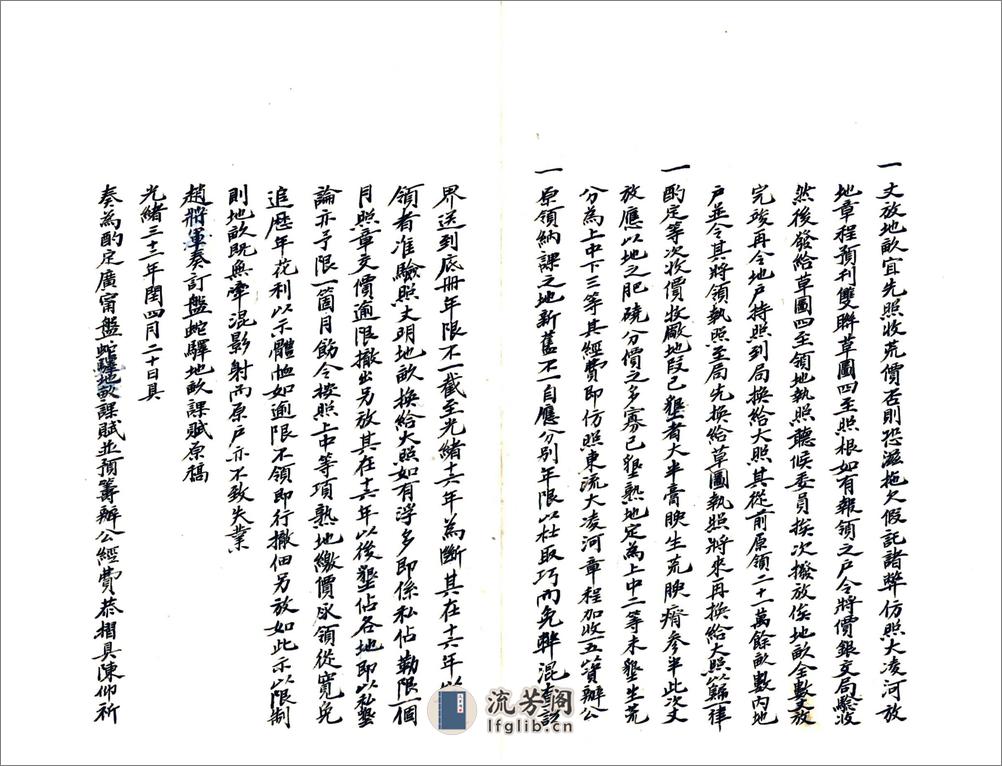 一丈放地畝宜先照收荒價否則恐滋拖欠假託諸弊仿照大凌河放
地章程預刊雙聯草圖四至照根如有報領之户令將價銀交局驗收
然後發給草圖四至領地執照聽候委員挨次撥放俟地畝全數丈放
完竣再令地户持照到局換給大照其從前原領二十一萬餘畝數内地
户並令其將領執照至局先換給草圖執照將來再換給大照以歸一律
一酌定等次收價牧廠地段已墾者大半膏腴生荒腴瘠參半此次丈
放應以地之肥磽分價之多寡已墾熟地定為上中二等未墾生荒
分為上中下三等其經費即仿照東流大凌河章程加收五分辦公
一原領納課之地新舊不一自應分别年限以杜取巧而免轇混
界送到底册年限不一截至光緒十六年為斷其在十六年以
領者准驗照丈明地畝換給大照如有浮多即係私佔勒限一個
月照章交價逾限撤出另放其在十六年以後墾佔各地即以私墾
論亦予限一箇月飭令按照上中等項熟地繳價承領從寬免
追歷年花利以示體恤如逾限不領即行撤佃另放如此示以限制
則地畝既無牽混影射而原户亦不致失業
趙將軍奏訂盤蛇驛地畝課賦原稿
光緒三十三年閏四月二十日具
奏為酌定廣甯盤蛇驛地畝課賦並預籌辦公經費恭摺具陳仰祈
流芳閣
lfglib.cn